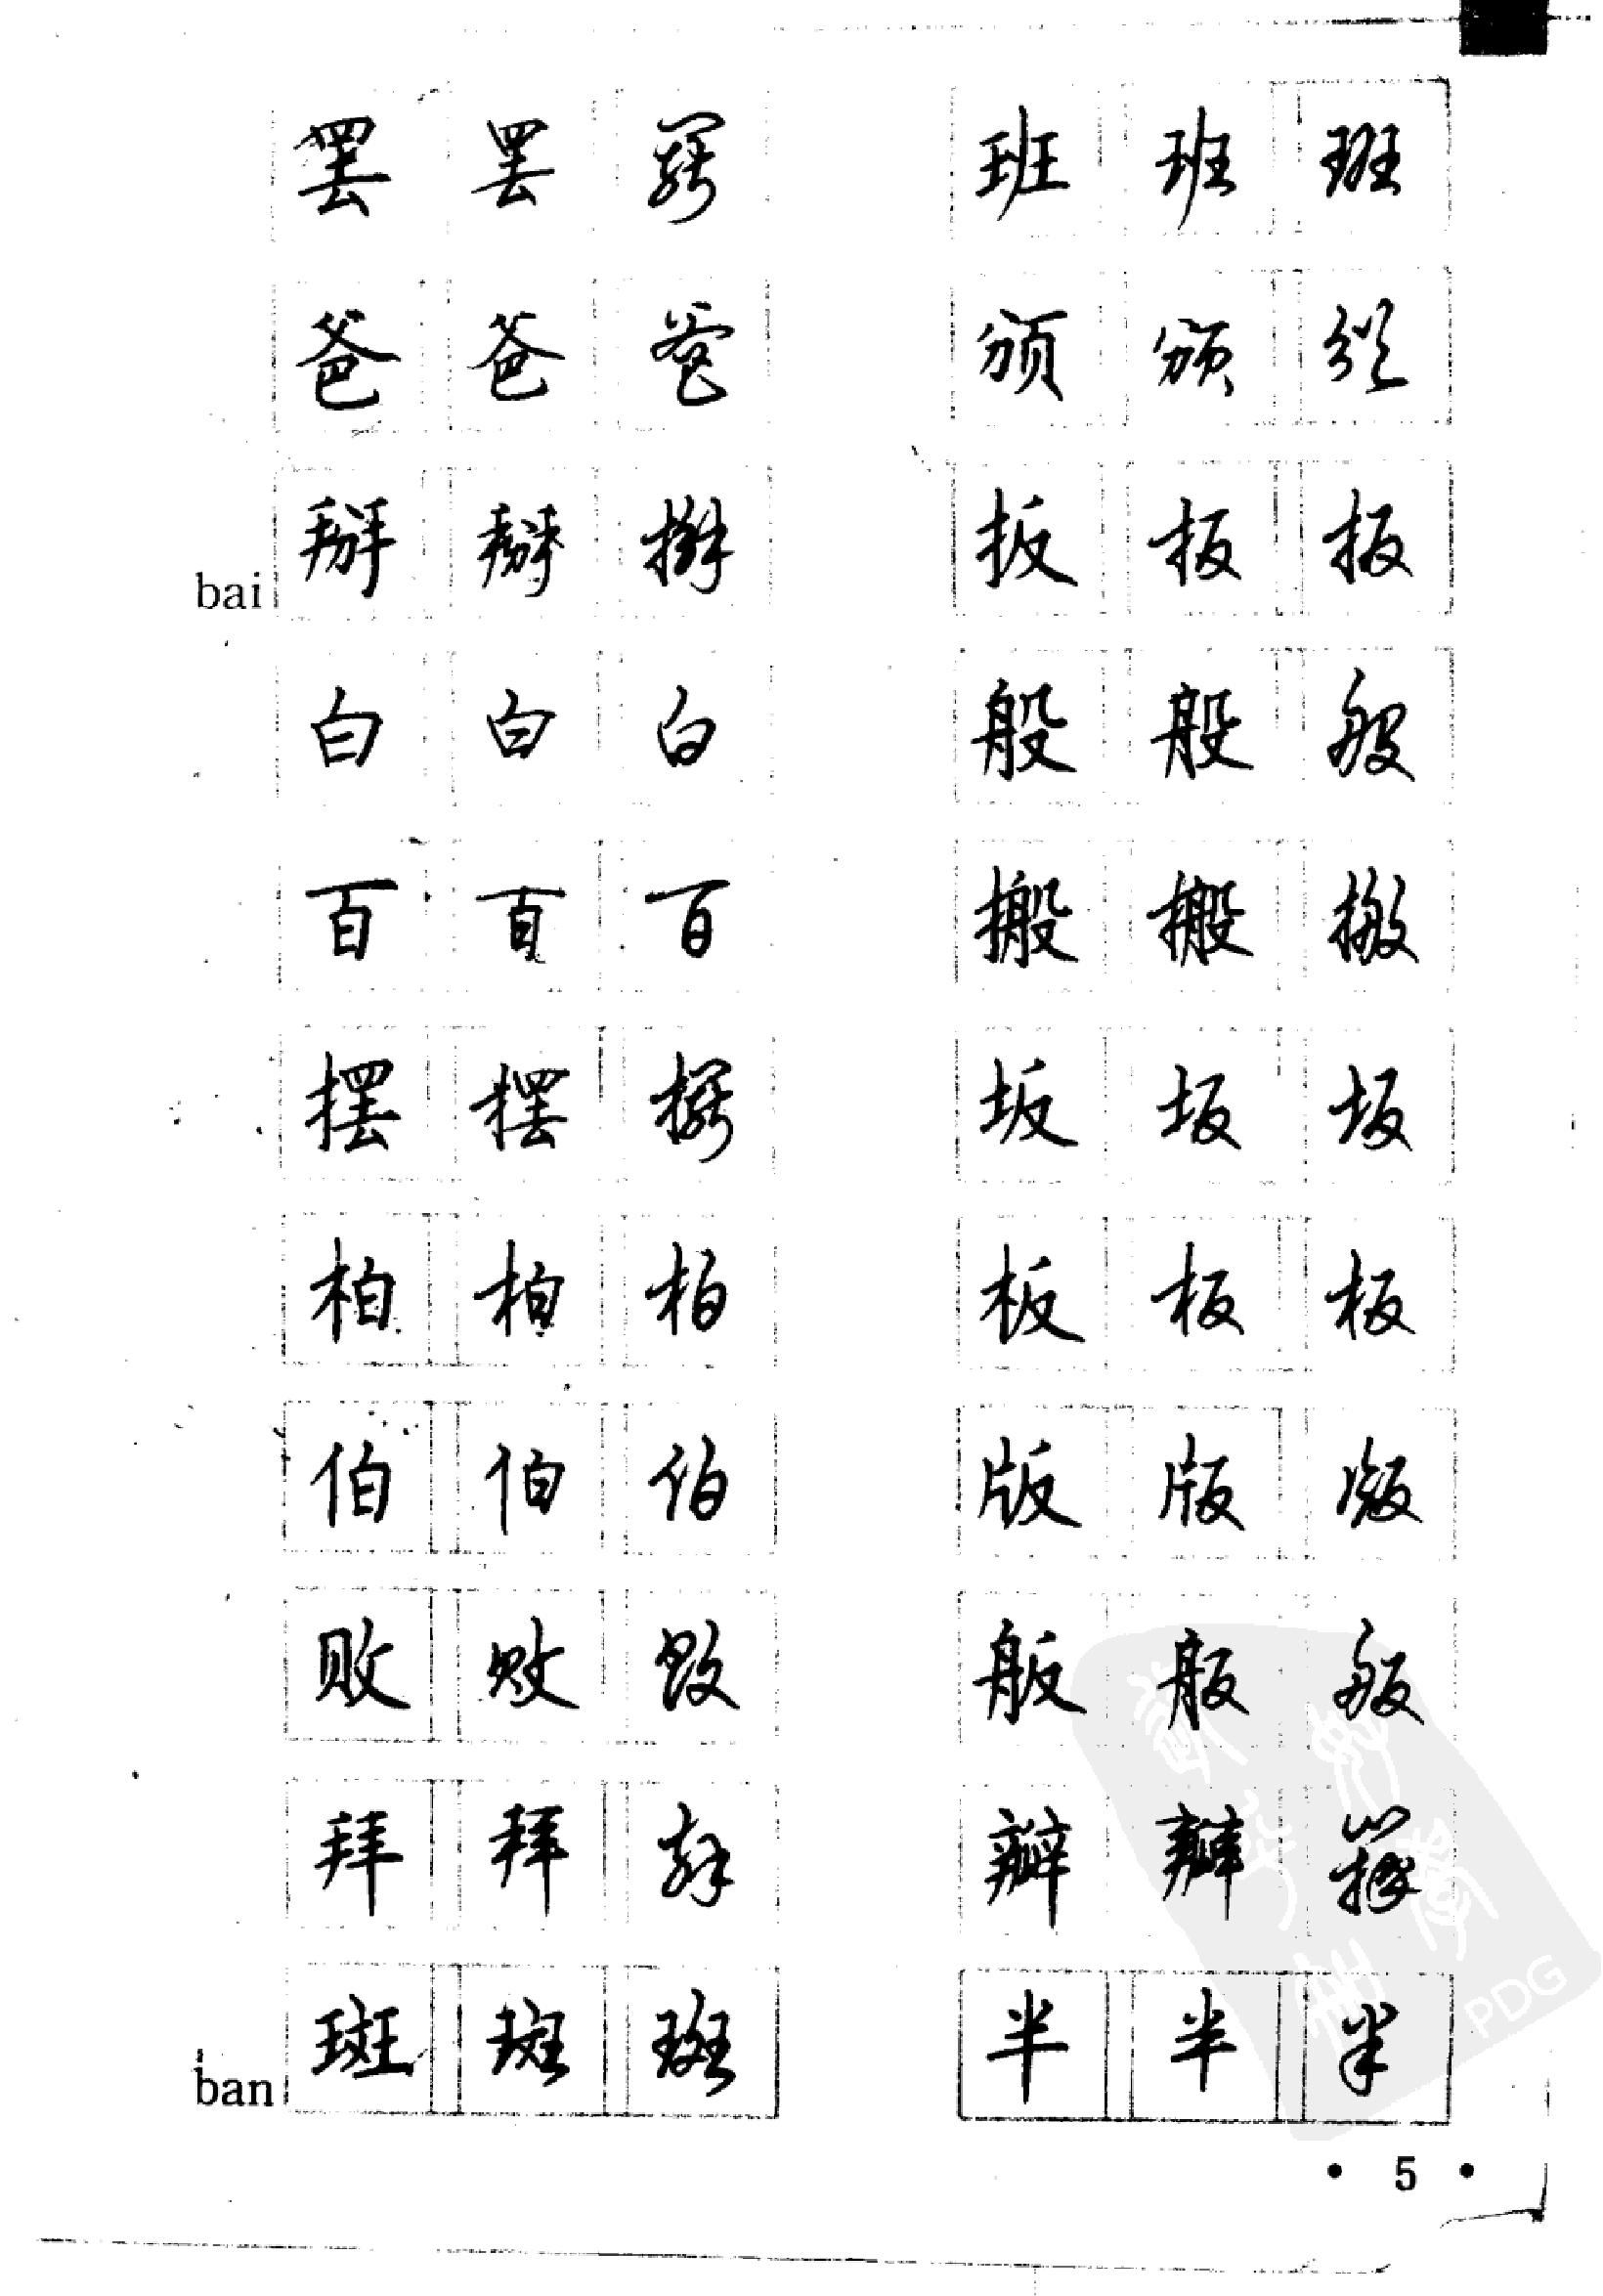 罢 罢 罢
爸 爸 爸
bai 掰 掰 掰
白 白 白
百 百 百
摆 摆 摆
柏 柏 柏
伯 伯 伯
败 败 败
拜 拜 拜
ban 斑 斑 斑
班 班 班
颁 颁 颁
扳 扳 扳
般 般 般
搬 搬 搬
坂 坂 坂
板 板 板
版 版 版
舨 舨 舨
瓣 瓣 瓣
半 半 半
PDG
• 5 •